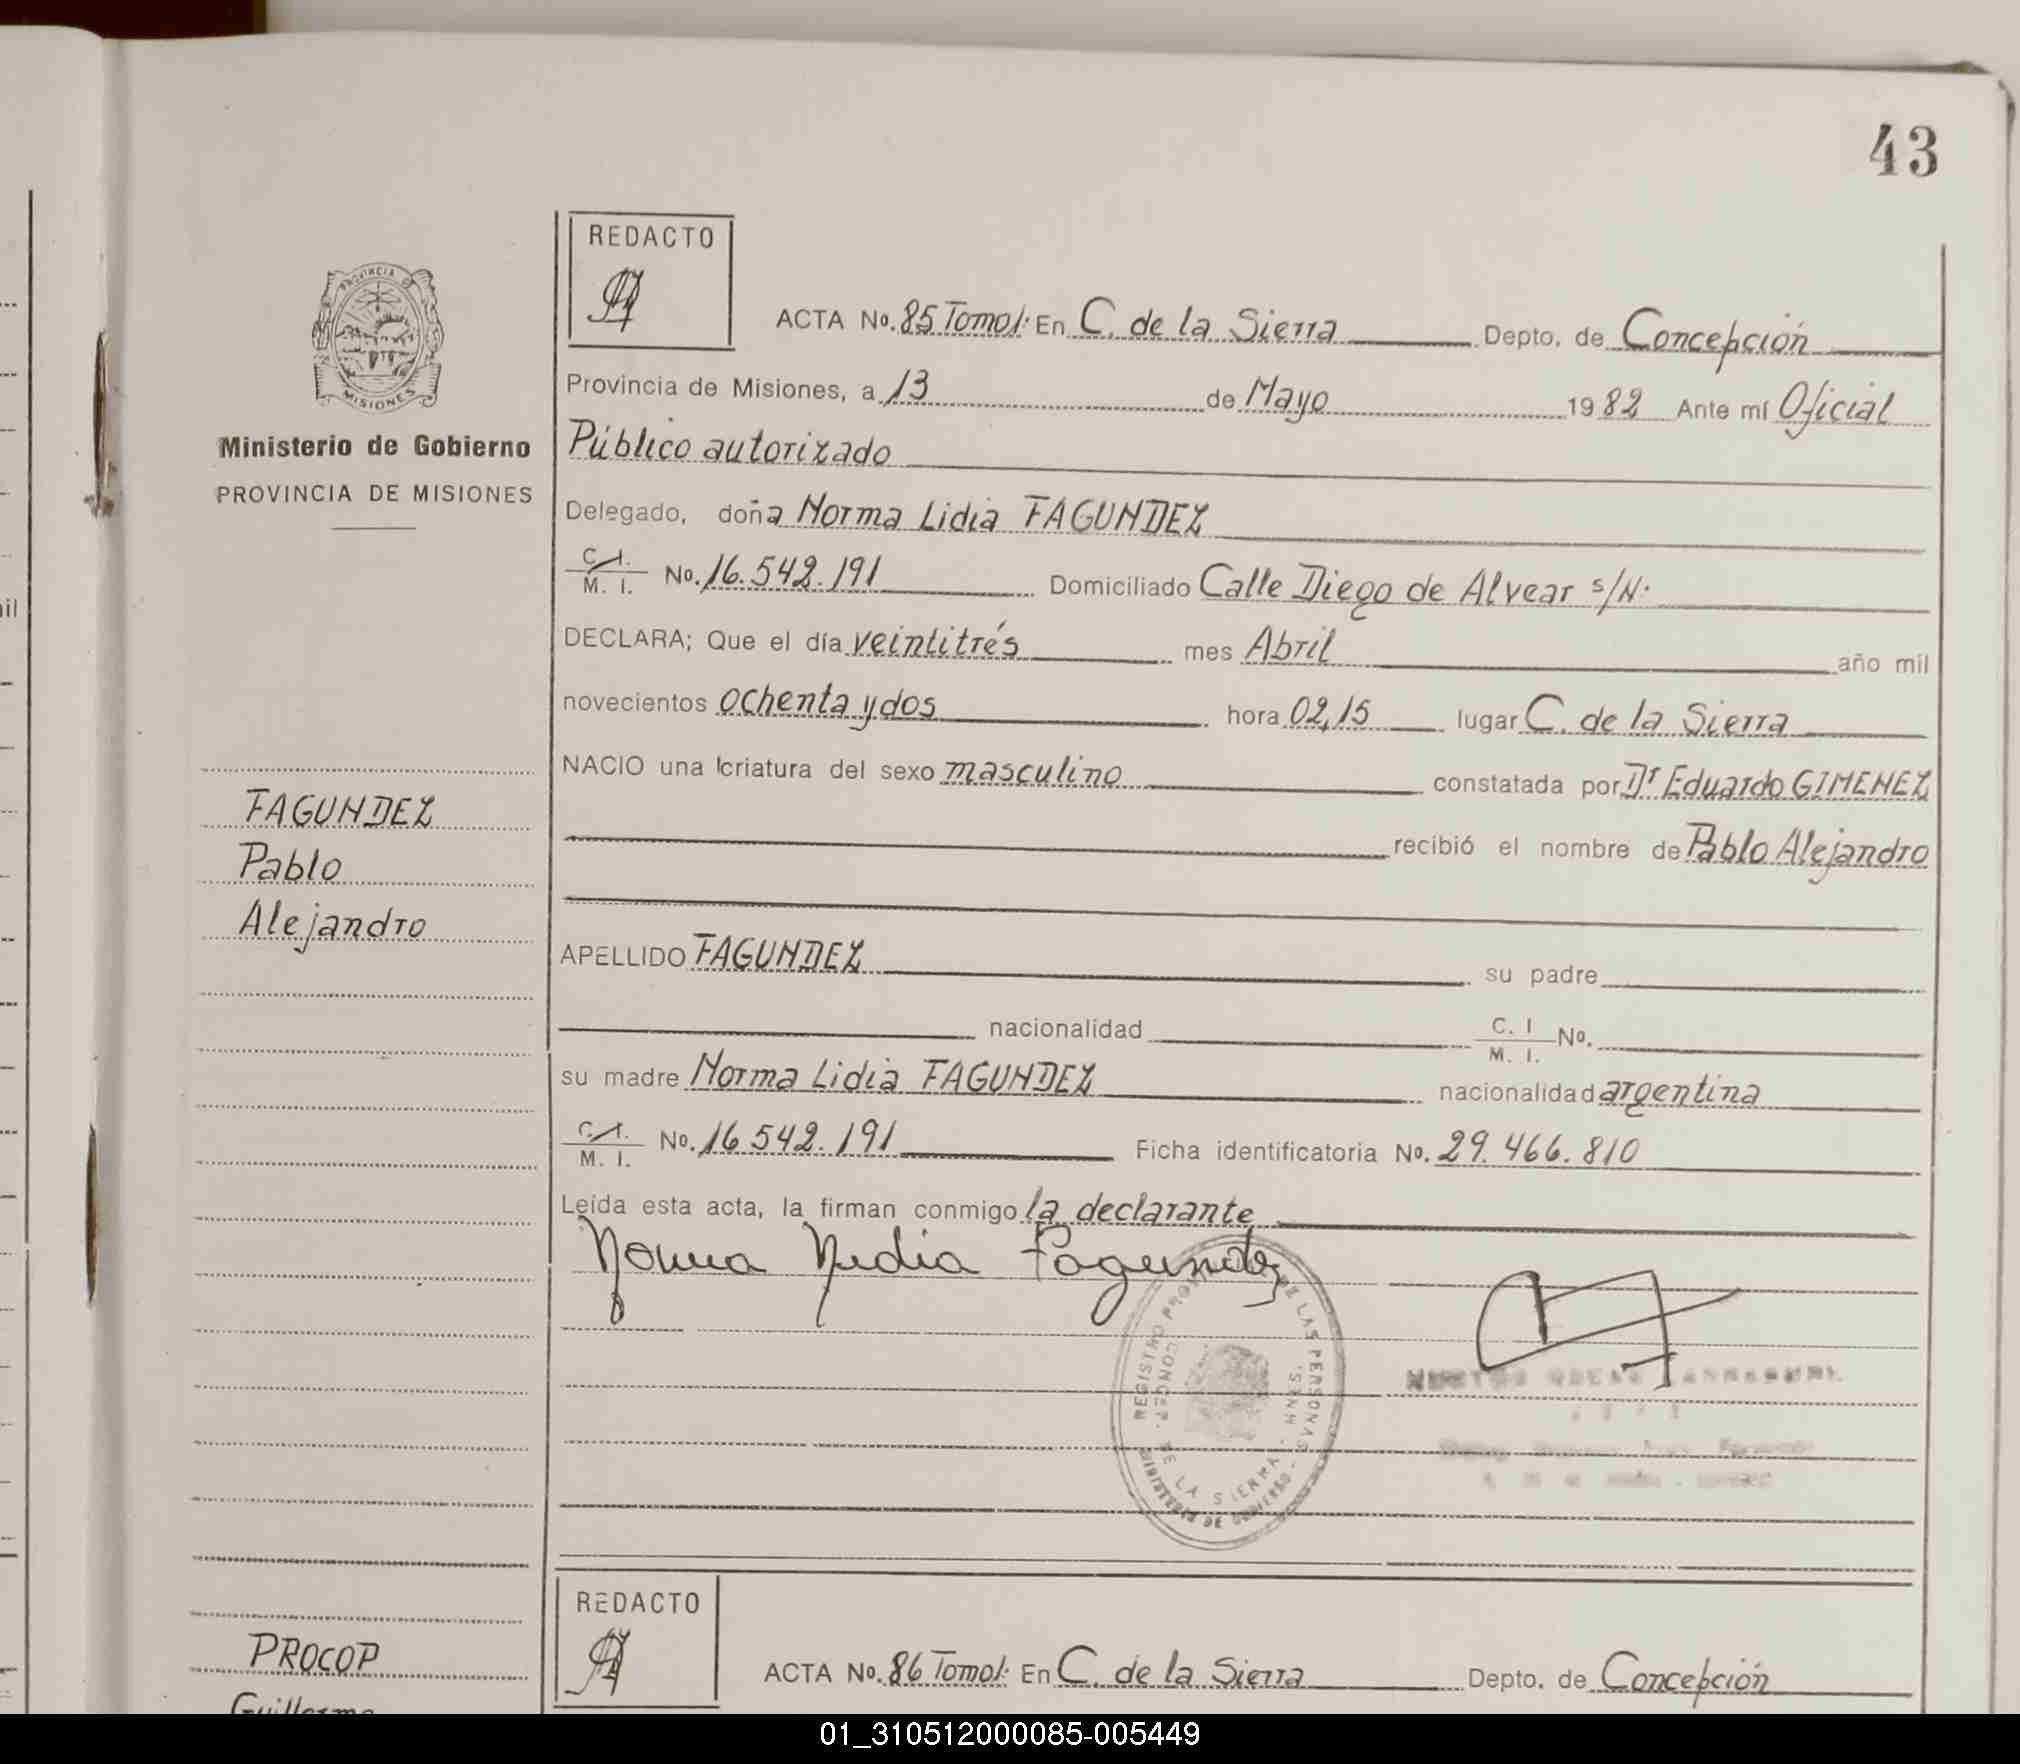 43
REDACTO
ACTA No. 85 Tomo I: En C. de la Sierra Depto. de Concepción
Provincia de Misiones, a 13 de Mayo 1982 Ante mí Oficial
Público autorizado
PROVINCIA
MISIONES
Ministerio de Gobierno
PROVINCIA DE MISIONES
Delegado, doña Norma Lidia FAGUNDEZ
C. I.
M. I. No. 16.542.191 Domiciliado Calle Diego de Alvear s/N.
DECLARA; Que el día veintitrés mes Abril año mil
novecientos ochenta y dos hora 02,15 lugar C. de la Sierra
NACIO una criatura del sexo masculino constatada por Dr Eduardo GIMENEZ
recibió el nombre de Pablo Alejandro
FAGUNDEZ
Pablo
Alejandro
APELLIDO FAGUNDEZ su padre
nacionalidad C. I
M. I. No.
su madre Norma Lidia FAGUNDEZ nacionalidad argentina
C. I.
M. I. No. 16.542.191 Ficha identificatoria No. 29.466.810
Leída esta acta, la firman conmigo la declarante
Norma Lidia Fagundez
REGISTRO PROV DE LAS PERSONAS
CONCEP. DE LA SIERRA. MNES.
MINISTERIO DE GOBIERNO
REDACTO
ACTA No. 86 Tomo I: En C. de la Sierra Depto. de Concepción
PROCOP
Guillermo
nil
01_310512000085-005449